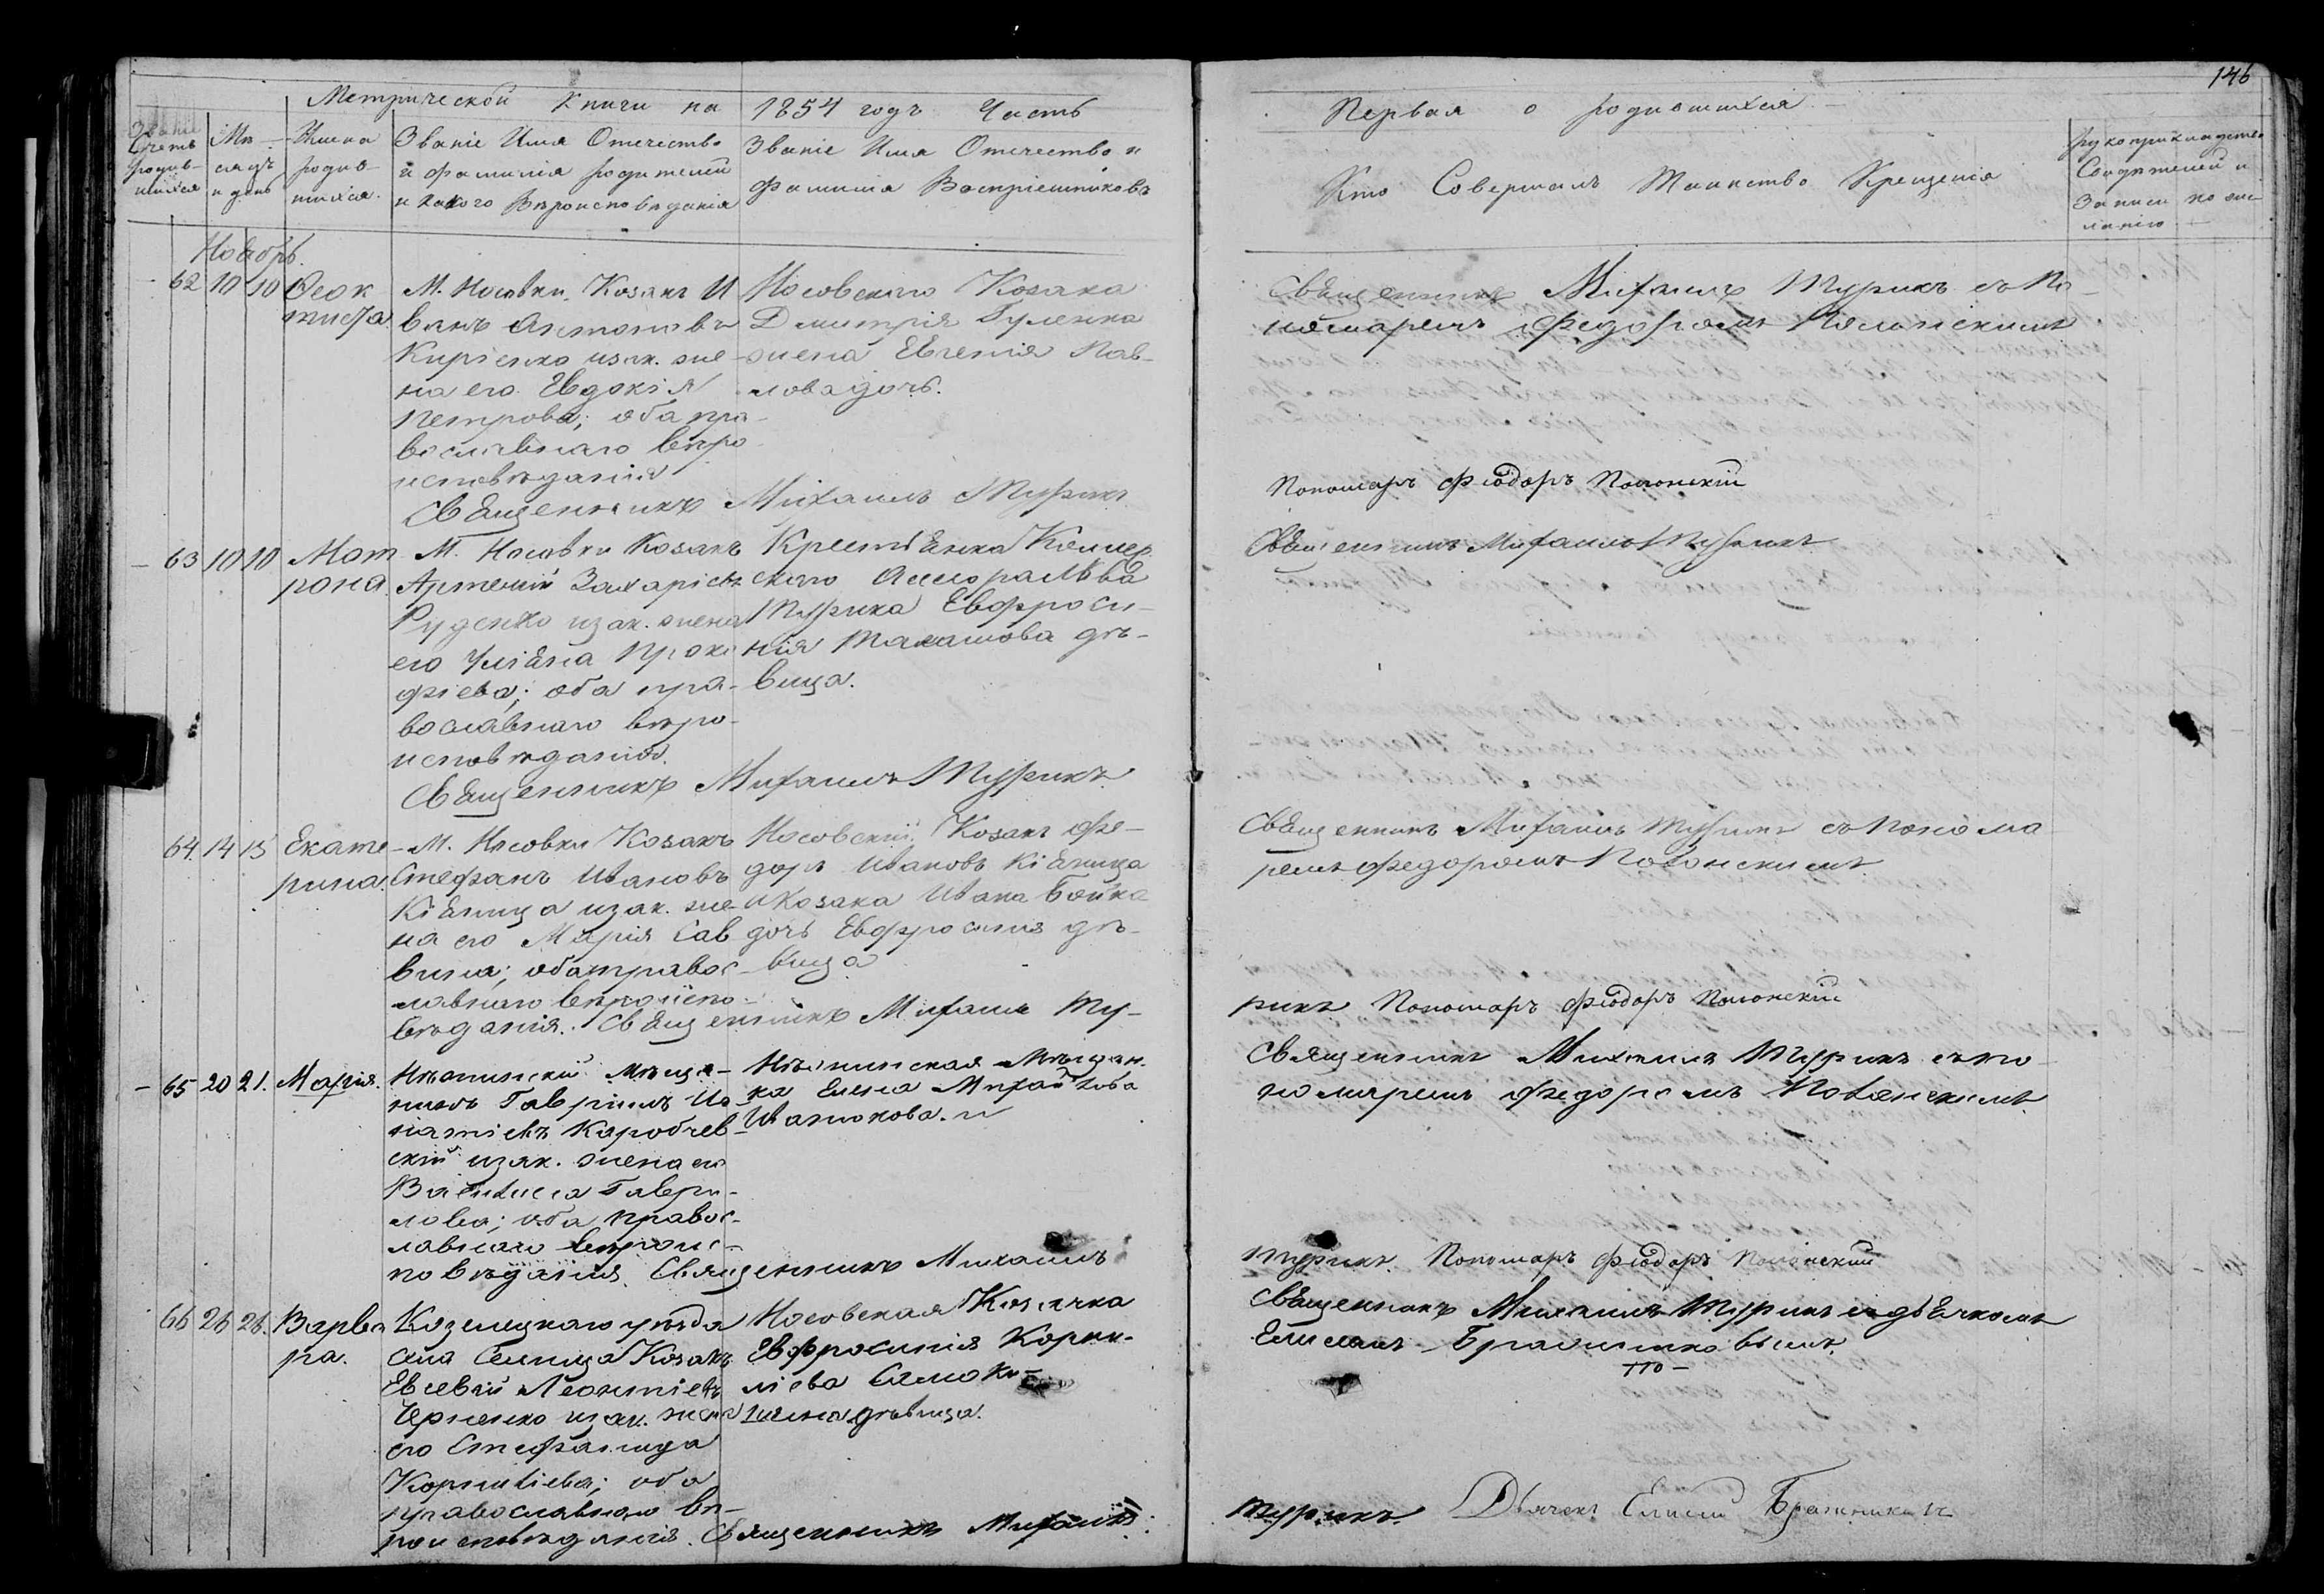 146
Метрической Книги на 1854 годъ Часть
Первая о родившихся
Счетъ родив-шихся
Мѣ-сяцъ и день
Имена родив-шихся.
Званіе Имя Отечество
и фамилія родителей
и какого Вѣроисповѣданія
Званіе Имя Отечество и
фамилія Воспріемниковъ
Кто Совершалъ Таинство Крещенія
рукоприкладство
Свидѣтелей и
Записи по же-
ланію
Ноябрь.
62 10 10 Ѳеок
тиста
М. Носовки, Козакъ И
ванъ Антоновъ
Киріенко изак. же-
на его Евдокія
Петрова; оба пра-
вославнаго вѣро
исповѣданія
Носовскаго Козака
Дмитрія Гуленка
жена Евгенія Пав-
лова дочь.
Священникъ Михаилъ Турикъ съ По-
номаремъ Федоромъ Полонскимъ
Священникъ Михаилъ Турикъ
Пономарь Фіодоръ Полонскій
63 10 10 Мат
рона.
М. Носовки Козакъ
Артемій Захаріевъ
Руденко изак. жена
его Уліяна Проко
фіева; оба пра-
вославнаго вѣро-
исповѣданія.
Крестьянка Коллеж
скаго Ассора Льва
Турика Евфроси-
нія дѣ-
вица.
Священникъ Михаилъ Турикъ
Священникъ Михаилъ Турикъ
64. 14 15 Екате
рина.
М. Носовки Козакъ
Стефанъ Ивановъ
Кіяница изак. же-
на его Марія Сав
вина; оба правос-
лавнаго вѣроиспо-
вѣданія.
Носовскій Козакъ Фе-
доръ Ивановъ Кіяница
и Козака Ивана Бойка
дочь Евфросинія дѣ-
вица
Священникъ Михаилъ Турикъ съ Понома
ремъ Федоромъ Полонскимъ
Священникъ Михаилъ Ту-
рикъ Пономарь Фіодоръ Полонскій
65 20 21. Марія.
Нѣжинскій Мѣща-
нинъ Гавріилъ Иг
натіевъ Каробчев-
скій изак. жена его
Васса Гаври-
лова; оба правос-
лавнаго вѣроис-
повѣданія.
Нѣжинская Мѣщан.
ка Елена Михайлова
Священникъ Михаилъ Турикъ съ по
номаремъ Федоромъ Полонскимъ
Священникъ Михаилъ
Турикъ. Пономарь Фіодоръ Полонскій
66 26 26. Варва
ра.
Козелецкаго уѣзда
Козакъ
Евсевій Леонтіевъ
изак. жена
его Стефанида
Корнилiева; оба
православнаго вѣ-
роисповѣданія.
Носовская Козачка
Евфросинія Корни-
ліева
дѣвица.
Священникъ Михаилъ Турикъ и дьячкомъ
Елисеемъ
Священникъ Михаилъ
Турикъ. Дьячекъ Елисей Бражниковъ